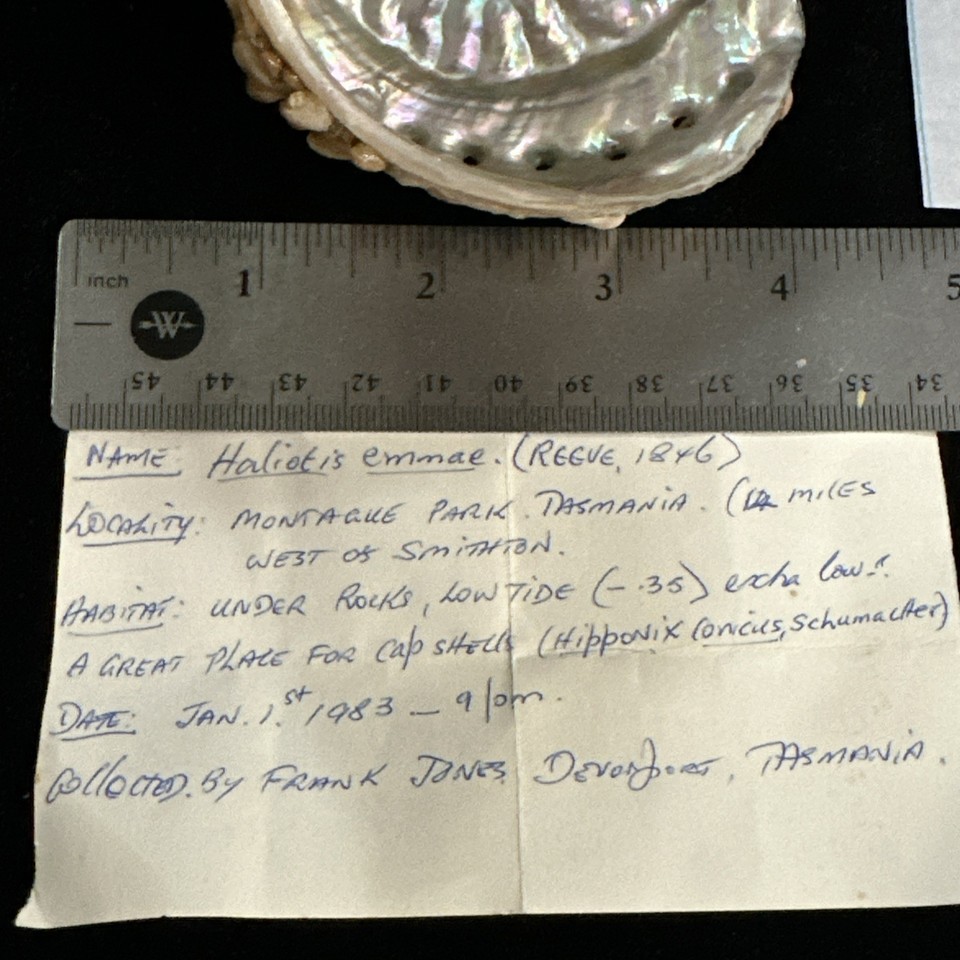 inch
1 2 3 4 5
W
45 44 43 42 41 40 39 38 37 36 35 34
NAME: Haliotis emmae. (REEVE, 1846)
LOCALITY: MONTAGUE PARK. TASMANIA. (12 MILES
WEST OF SMITHTON.
HABITAT: UNDER ROCKS, LOW TIDE (-.35) extra low!.
A GREAT PLACE FOR Cap SHELLS (Hipponix Conicus, Schumacher)
DATE: JAN. 1.st 1983 — 9 pm.
Collected. By FRANK JONES, DEVONPORT, TASMANIA.